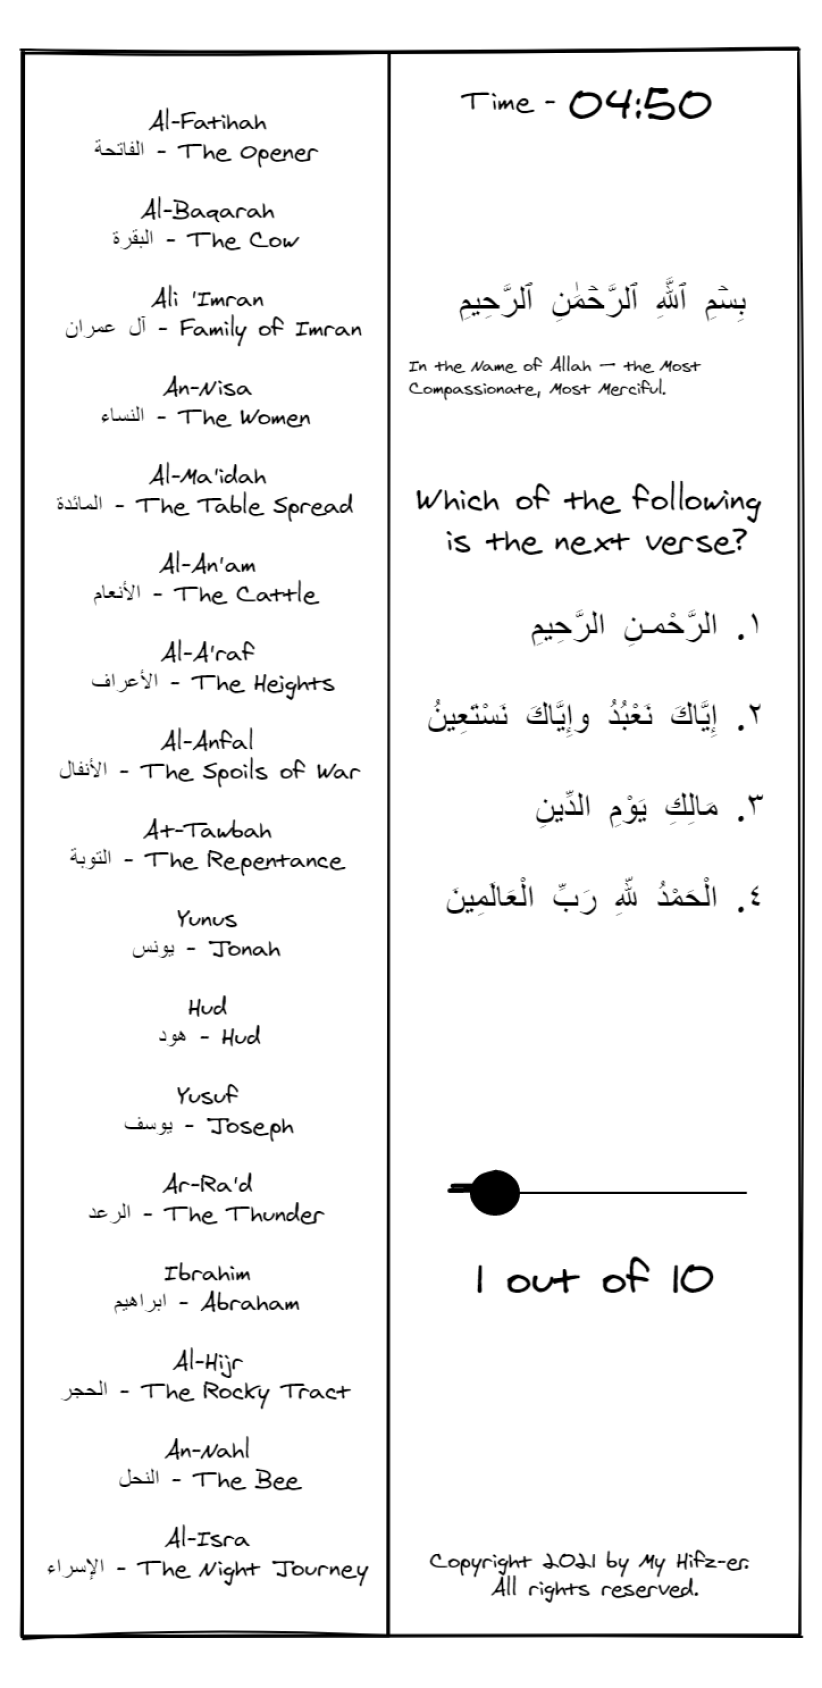 Al-Fatihah
الفاتحة - The Opener
Al-Baqarah
البقرة - The Cow
Ali 'Imran
آل عمران - Family of Imran
An-Nisa
النساء - The Women
Al-Ma'idah
المائدة - The Table Spread
Al-An'am
الأنعام - The Cattle
Al-A'raf
الأعراف - The Heights
Al-Anfal
الأنفال - The Spoils of War
At-Tawbah
التوبة - The Repentance
Yunus
يونس - Jonah
Hud
هود - Hud
Yusuf
يوسف - Joseph
Ar-Ra'd
الرعد - The Thunder
Ibrahim
ابراهيم - Abraham
Al-Hijr
الحجر - The Rocky Tract
An-Nahl
النحل - The Bee
Al-Isra
الإسراء - The Night Journey
Time - 04:50
بِسْمِ ٱللَّهِ ٱلرَّحْمَٰنِ ٱلرَّحِيمِ
In the Name of Allah — the Most
Compassionate, Most Merciful.
Which of the following
is the next verse?
١. الرَّحْمـنِ الرَّحِيمِ
٢. إِيَّاكَ نَعْبُدُ وإِيَّاكَ نَسْتَعِينُ
٣. مَالِكِ يَوْمِ الدِّينِ
٤. الْحَمْدُ للّهِ رَبِّ الْعَالَمِينَ
1 out of 10
Copyright 2021 by My Hifz-er.
All rights reserved.